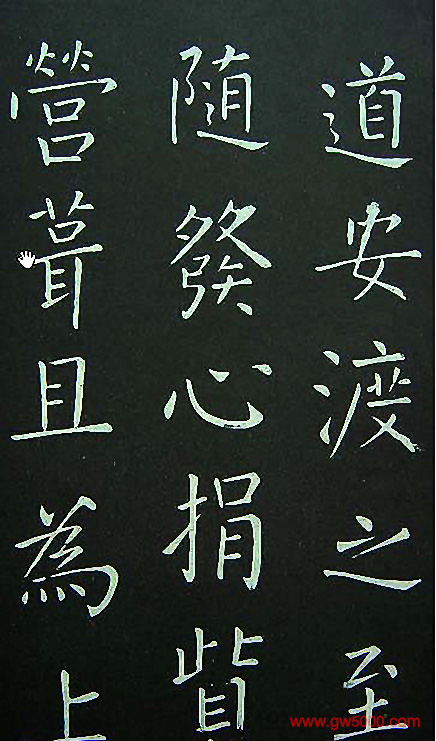 道安渡之至
随發心捐貲
營葺且為上
www.gw5000.com